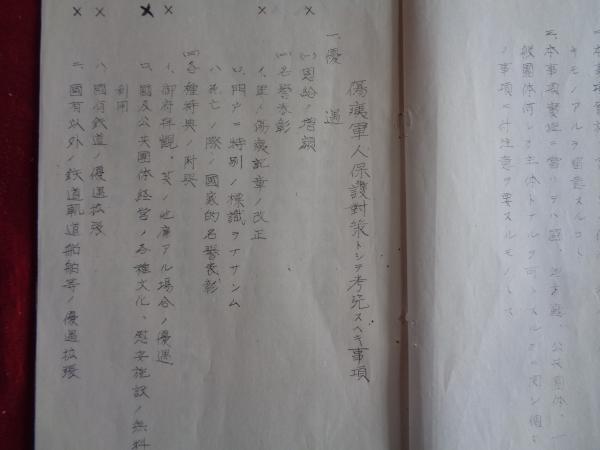 本事項實施ニ當リテハ
公共團體、一
般團體何レヲ主体トナルヲ可トスルカニ関シ個々
ノ事項ニ付注意ヲ要スルモノトス
傷痍軍人保護對策トシテ考究スヘキ事項
一、優遇
(一)恩給ノ増額
(二)名誉表彰
イ、軍人傷痍記章ノ改正
ロ、門戸ニ特別ノ標識ヲナサシム
ハ、死亡ノ際ノ國家的名誉表彰
(三)各種特典ノ附與
イ、御府拝観、其ノ他席アル場合ノ優遇
ロ、國及公共團体経営ノ各種文化、慰安施設ノ無料
利用
ハ、國有鉄道ノ優遇拡張
ニ、國有以外ノ鉄道軌道船舶等ノ優遇拡張